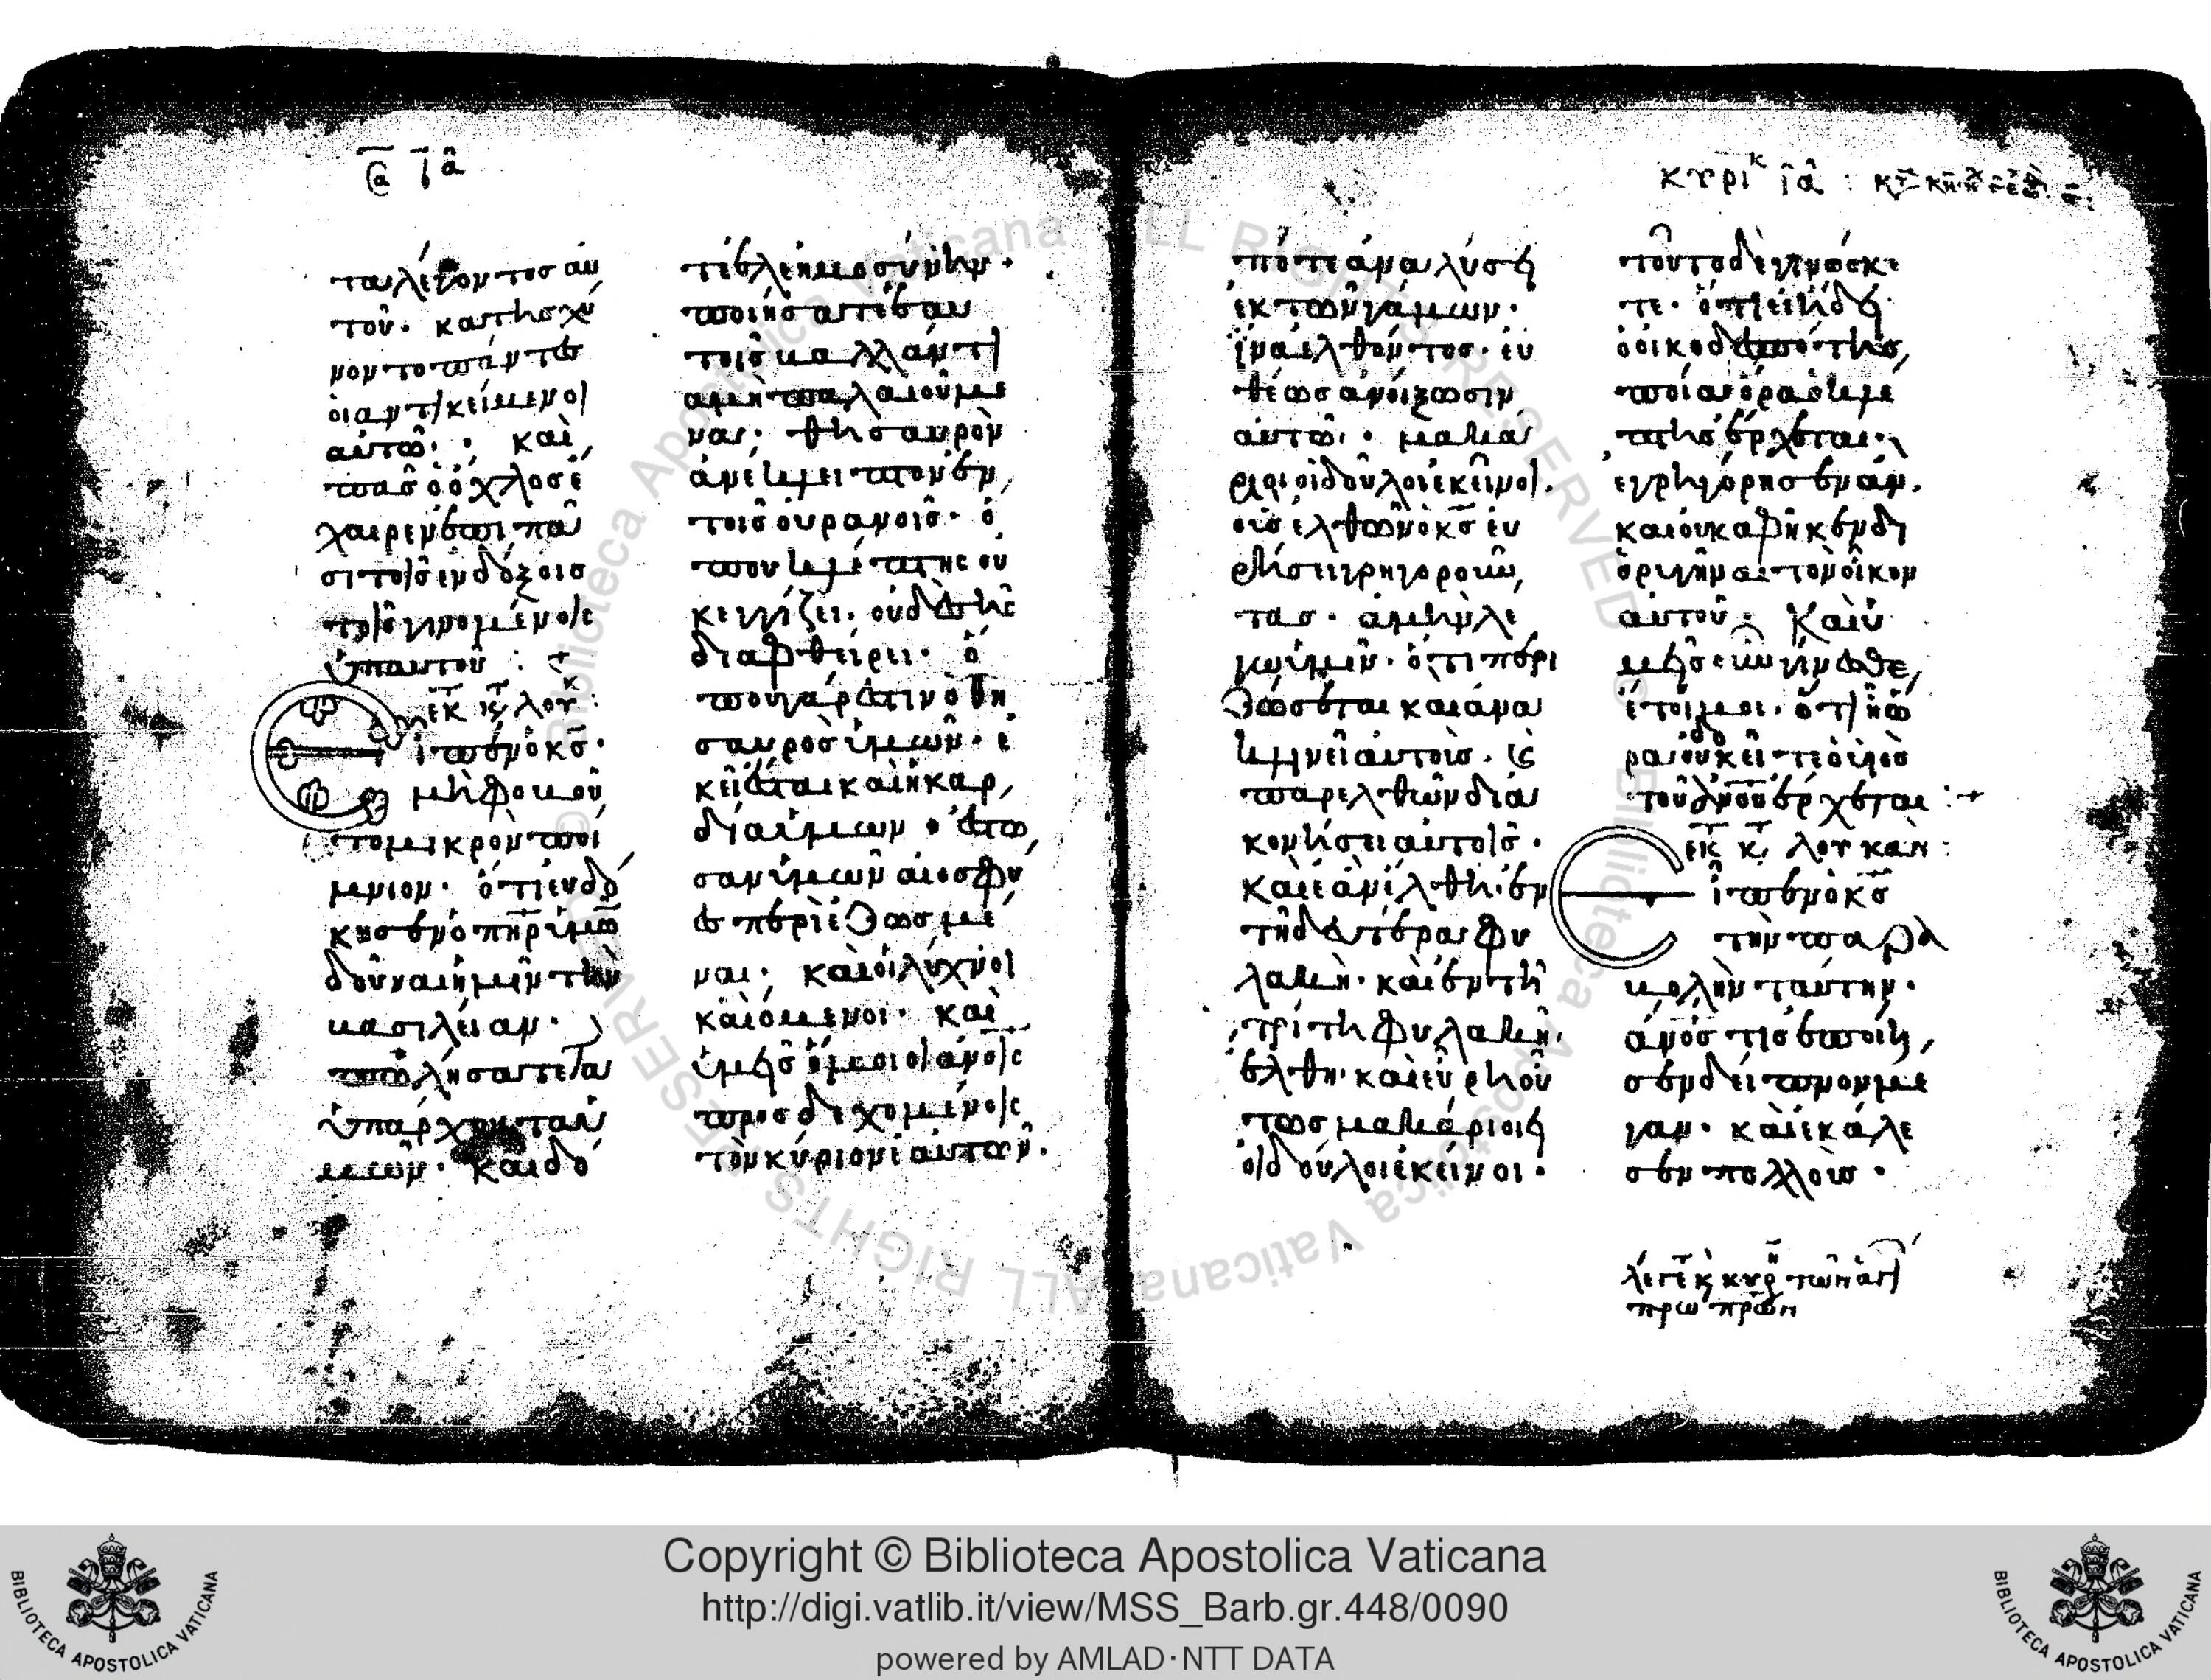 ια
τα λέγοντος αυ
τοῦ. κατησχύ
νοντο πάντες
οἱ ἀντικείμενοι
αὐτῷ· καὶ
πᾶς ὁ ὄχλος ἔ
χαιρεν ἐπὶ πᾶ
σι τοῖς ἐνδόξοις
τοῖς γινομένοις
ὑπ αυτοῦ :+
ἐκ τ κτ λουκ :
Εἶπεν ὁ κς·
μὴ φοβοῦ
το μικρὸν ποί
μνιον· ὅτι ευδό
κησεν ὁ πηρ ὑμῶ
δοῦναι ἡμῖν την
βασιλείαν·
πωλήσατε τα
ὑπάρχοντα ὑ
μῶν· και δό
τε ἐλεημοσύνην·
ποιήσατε ἑαυ
τοῖς βαλλάντι
α μὴ παλαιούμε
να· θησαυρὸν
ἀνέκλειπτον ἐν
τοῖς ουρανοῖς· ὁ
που κλέπτης ου
κ εγγίζει· οὐδὲ σης
διαφθείρει· ὁ
που γάρ ἐστιν ὁ θη
σαυρὸς ὑμῶν· ἐ
κεῖ ἔσται και ἡ καρ
δία ὑμων· ἔστω
σαν ὑμῶν αι οσφύ
ες περιεζωσμέ
ναι· και οἱ λύχνοι
καιόμενοι· καὶ
ὑμεῖς ὅμοιοι ανοις
προσδεχομένοις
τὸν κύριον ἑαυτῶν·
κυρικ ια :
πότε ἀναλύσει
ἐκ τῶν γάμων·
ἵνα ἐλθόντος· εὐ
θέως ἀνοίξωσιν
αὐτῷ· μακά
ριοι οἱ δοῦλοι ἐκεῖνοι·
οὓς ἐλθὼν ὁ κς εὑ
ρήσει γρηγοροῦν
τας· ἀμὴν λέ
γω ὑμῖν· ὅτι περι
ζώσεται και ἀνα
κλινεῖ αὐτοὺς· καὶ
παρελθὼν δια
κονήσει αὐτοῖς·
καὶ ἐὰν ἔλθη· ἐν
τῆ δευτέρα φυ
λακῆ· και ἐν τῆ
τρίτη φυλακῆ·
ἔλθη· και εὕρη οὕ
τως μακάριοι εἰ
οἱ δούλοι ἐκείνοι·
τοῦτο δὲ γινώσκε
τε· ὅτι εἰ ἤδει
ὁ οἰκοδεσπότης
ποία ὥρα ὁ κλέ
πτης ἔρχεται·
εγρηγόρησεν ἂν·
και ουκ αφῆκεν δι
ορυγῆναι τὸν οἶκον
αὐτοῦ· Καὶ ὑ
μεῖς οῦν γίνεσθε
ἕτοιμοι· ὅτι ἧ ὥ
ρα οὐ δοκεῖτε ὁ υἱὸς
τοῦ ανου ἔρχεται :+
ἐκ τ κτ λουκὰν :
Εἶπεν ὁ κς
τὴν παρα
βολὴν ταύτην·
ἀνός τις ἐποίη
σεν δείπνον μέ
γαν· καὶ ἐκάλε
σεν πολλοὺς·
Copyright © Biblioteca Apostolica Vaticana
http://digi.vatlib.it/view/MSS_Barb.gr.448/0090
powered by AMLAD·NTT DATA
BIBLIOTECA APOSTOLICA VATICANA
BIBLIOTECA APOSTOLICA VATICANA